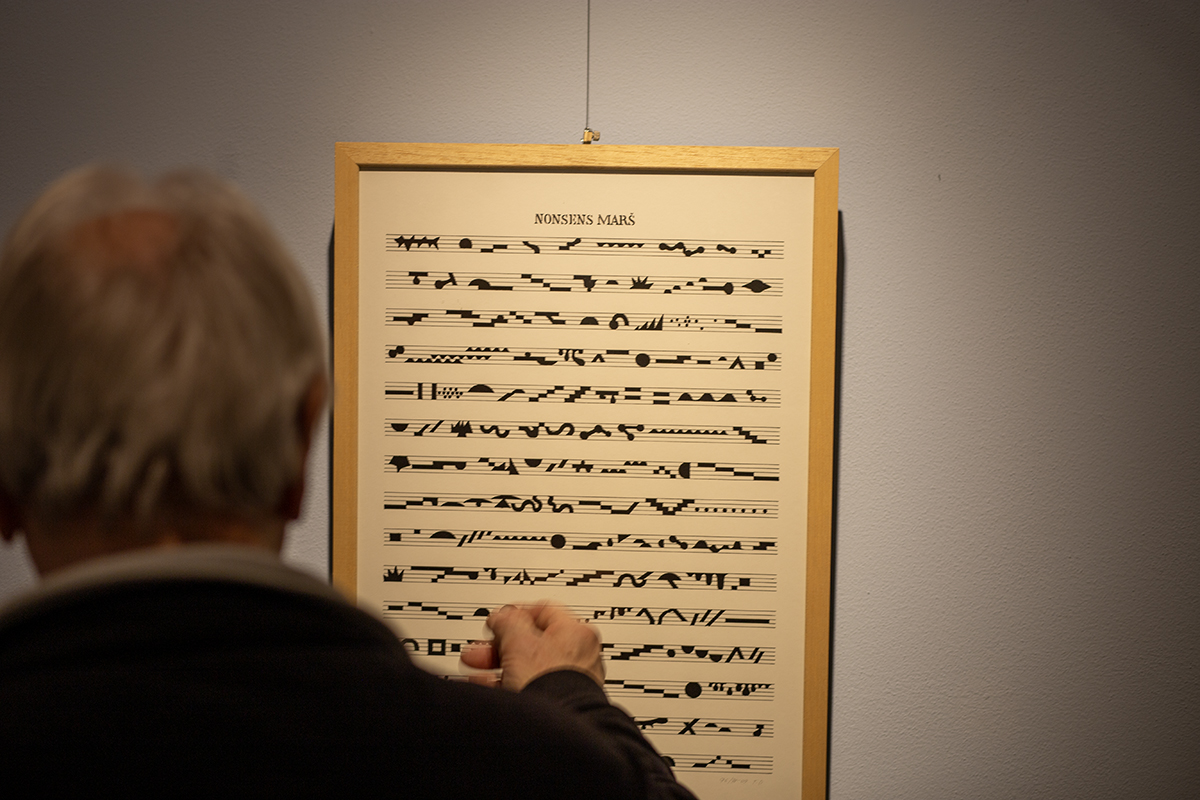 NONSENS MARŠ